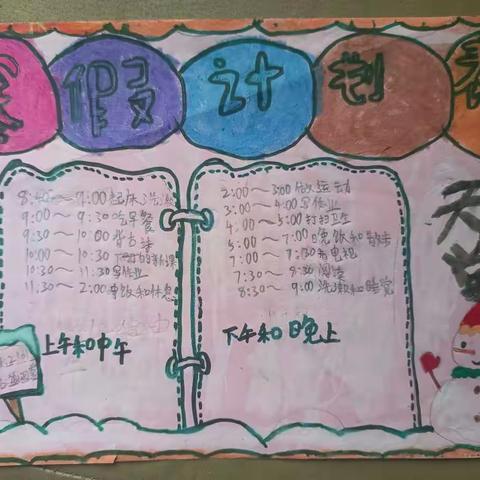 寒假计划表
8:40～9:00起床洗漱
9:00～9:30吃早餐
9:30～10:00背古诗
10:00～10:30
10:30～11:30写作业
11:30～2:00午饭和休息
上午和中午
2:00～3:00做运动
3:00～4:00写作业
4:00～5:00打扫卫生
5:00～7:00晚饭和散步
7:00～7:30看电视
7:30～8:30阅读
8:30～9:00洗漱和睡觉
下午和晚上